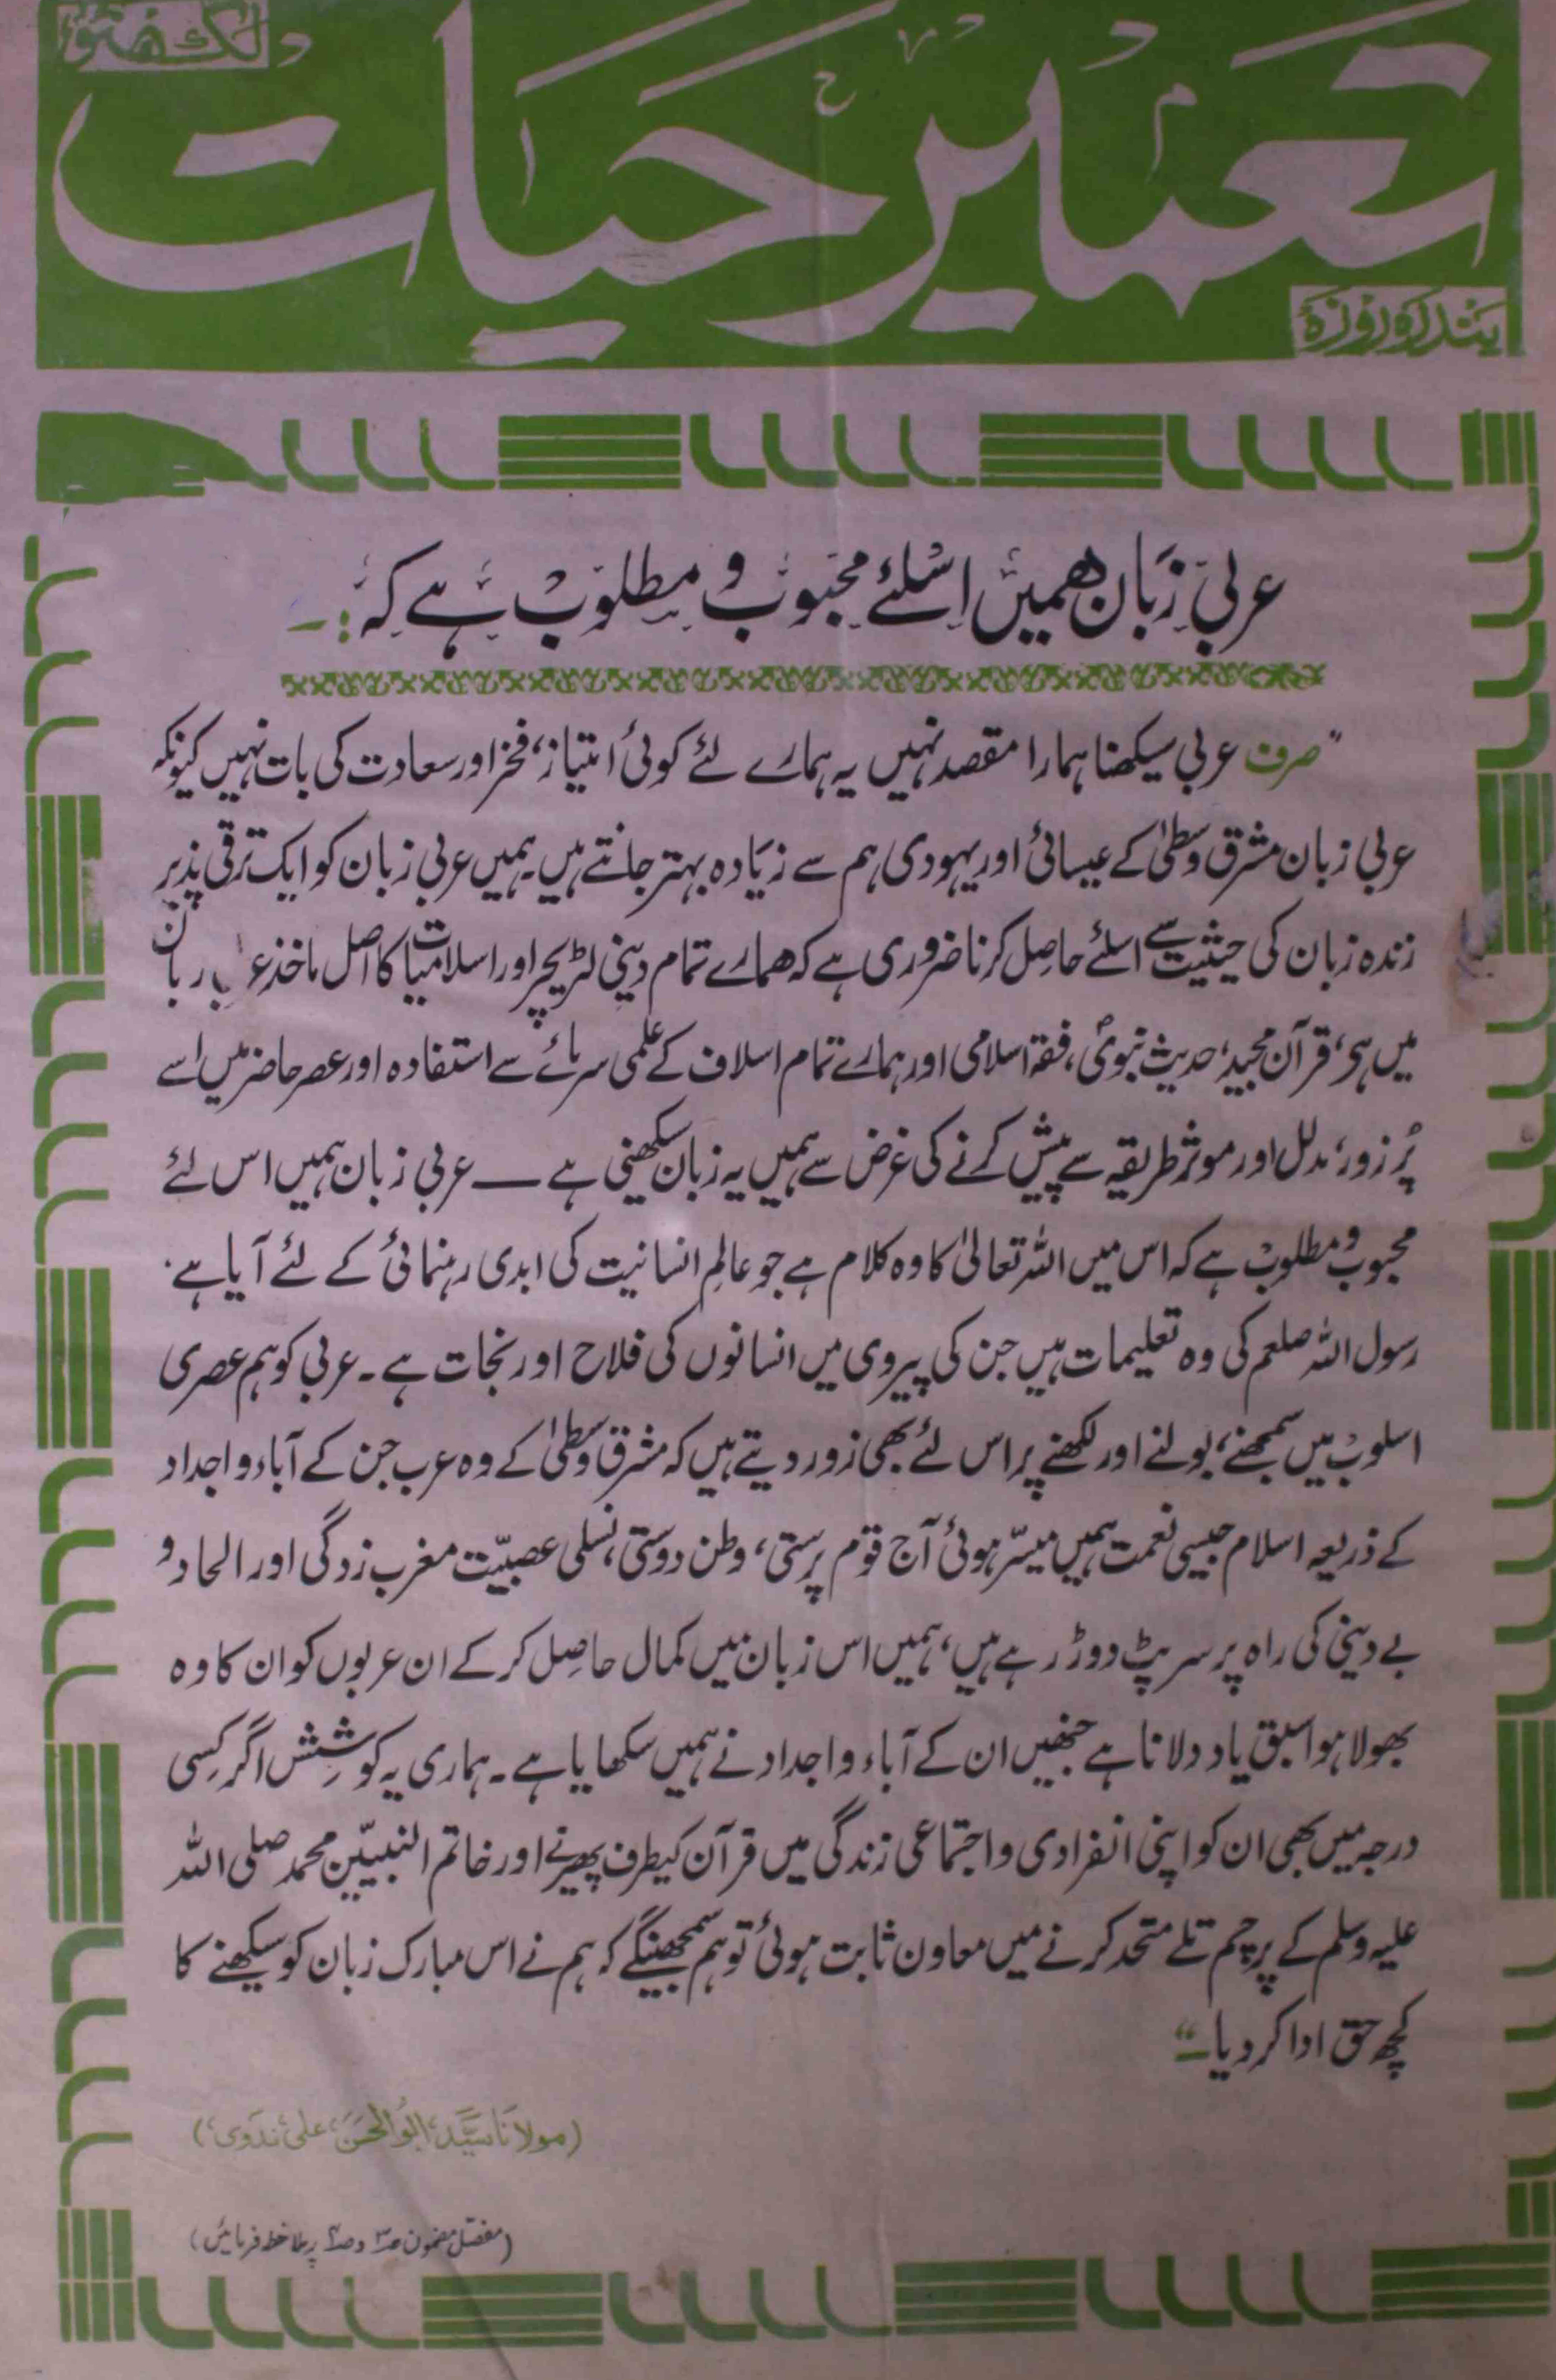 لکھنؤ
تعمیر حیات
پندرہ روزہ
عربی زبان ہمیں اسلئے محبوب و مطلوب ہے کہ :-
"صرف عربی سیکھنا ہمارا مقصد نہیں یہ ہمارے لئے کوئی امتیاز، فخر اور سعادت کی بات نہیں کیونکہ
عربی زبان مشرق وسطیٰ کے عیسائی اور یہودی ہم سے زیادہ بہتر جانتے ہیں۔ ہمیں عربی زبان کو ایک ترقی پذیر
زندہ زبان کی حیثیت سے اسلئے حاصل کرنا ضروری ہے کہ ہمارے تمام دینی لٹریچر اور اسلامیات کا اصل ماخذ عربی زبان
میں ہی، قرآن مجید، حدیث نبویؐ، فقہ اسلامی اور ہمارے تمام اسلاف کے علمی سرمائے سے استفادہ اور عصر حاضر میں اسے
پُر زور، مدلل اور موثر طریقہ سے پیش کرنے کی غرض سے ہمیں یہ زبان سیکھنی ہے — عربی زبان ہمیں اس لئے
محبوب و مطلوب ہے کہ اس میں اللہ تعالیٰ کا وہ کلام ہے جو عالم انسانیت کی ابدی رہنمائی کے لئے آیا ہے۔
رسول اللہ صلعم کی وہ تعلیمات ہیں جن کی پیروی میں انسانوں کی فلاح اور نجات ہے۔ عربی کو ہم عصری
اسلوب میں سمجھنے، بولنے اور لکھنے پر اس لئے بھی زور دیتے ہیں کہ مشرق وسطیٰ کے وہ عرب جن کے آباء و اجداد
کے ذریعہ اسلام جیسی نعمت ہمیں میسّر ہوئی آج قوم پرستی، وطن دوستی، نسلی عصبیّت مغرب زدگی اور الحاد و
بے دینی کی راہ پر سرپٹ دوڑ رہے ہیں، ہمیں اس زبان میں کمال حاصل کر کے ان عربوں کو ان کا وہ
بھولا ہوا سبق یاد دلانا ہے جنھیں ان کے آباء و اجداد نے ہمیں سکھایا ہے۔ ہماری یہ کوشش اگر کسی
درجہ میں بھی ان کو اپنی انفرادی و اجتماعی زندگی میں قرآن کیطرف پھیرنے اور خاتم النبیّین محمد صلی اللہ
علیہ وسلم کے پرچم تلے متحد کرنے میں معاون ثابت ہوئی تو ہم سمجھینگے کہ ہم نے اس مبارک زبان کو سیکھنے کا
کچھ حق ادا کر دیا۔"
(مولانا سیّد ابوالحسن علی ندوی)
(مفصّل مضمون پر ملاحظہ فرمائیں)